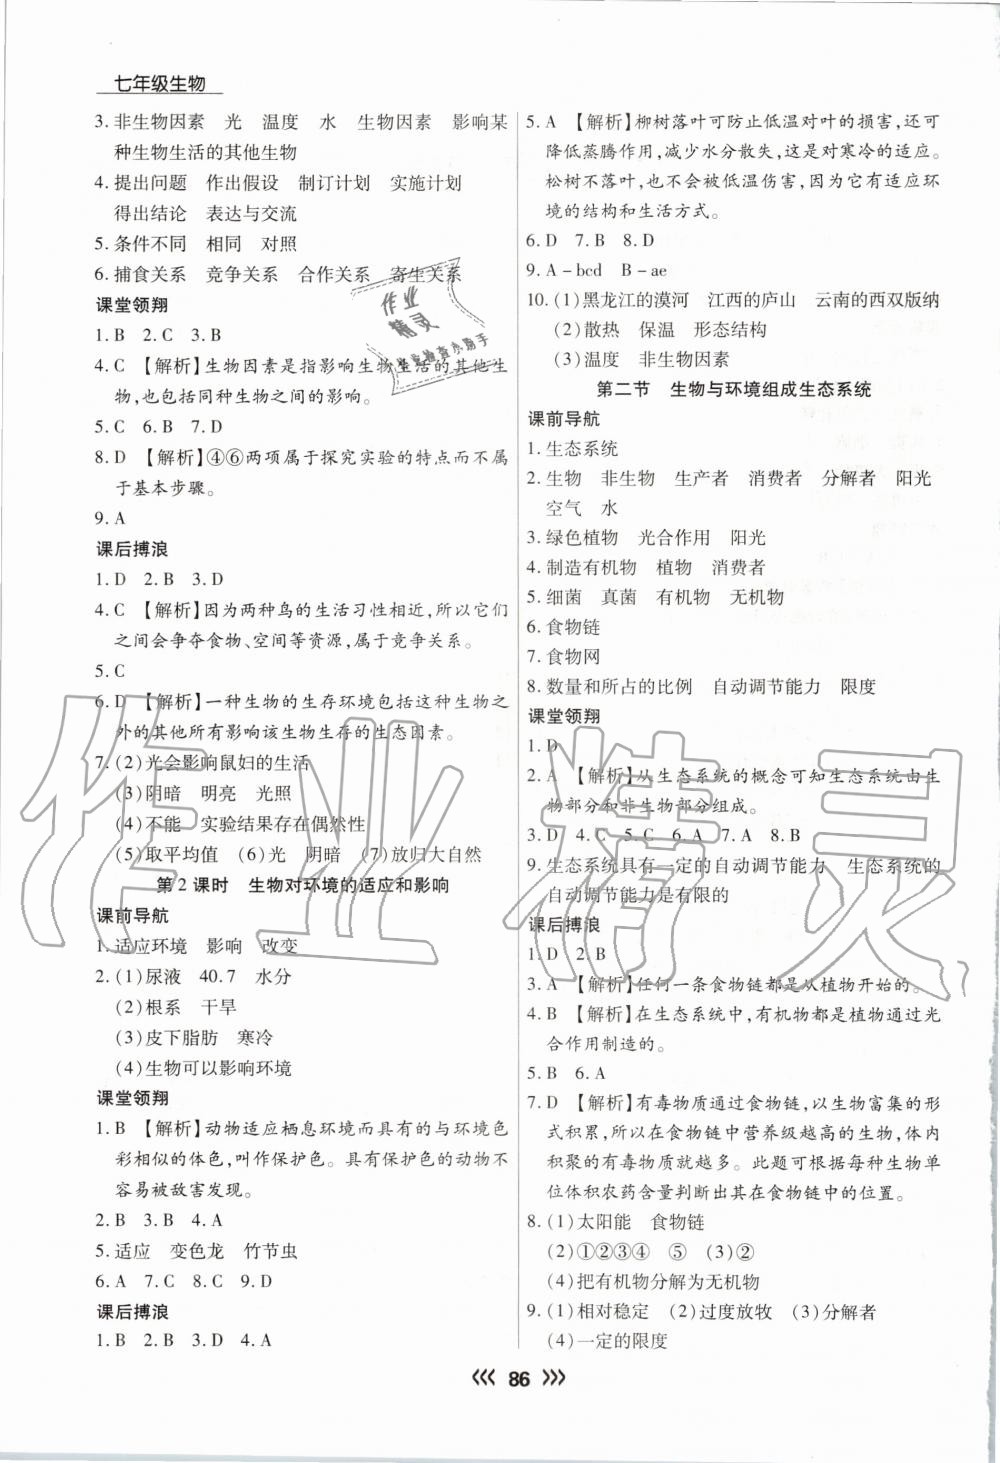 七年级生物
3. 非生物因素 光 温度 水 生物因素 影响某
种生物生活的其他生物
4. 提出问题 作出假设 制订计划 实施计划
得出结论 表达与交流
5. 条件不同 相同 对照
6. 捕食关系 竞争关系 合作关系 寄生关系
课堂领翔
1. B 2. C 3. B
4. C 【解析】生物因素是指影响生物生活的其他生
物,也包括同种生物之间的影响。
5. C 6. B 7. D
8. D 【解析】④⑥两项属于探究实验的特点而不属
于基本步骤。
9. A
课后搏浪
1. D 2. B 3. D
4. C 【解析】因为两种鸟的生活习性相近,所以它们
之间会争夺食物、空间等资源,属于竞争关系。
5. C
6. D 【解析】一种生物的生存环境包括这种生物之
外的其他所有影响该生物生存的生态因素。
7. (2)光会影响鼠妇的生活
(3)阴暗 明亮 光照
(4)不能 实验结果存在偶然性
(5)取平均值 (6)光 阴暗 (7)放归大自然
第2课时 生物对环境的适应和影响
课前导航
1. 适应环境 影响 改变
2. (1)尿液 40.7 水分
(2)根系 干旱
(3)皮下脂肪 寒冷
(4)生物可以影响环境
课堂领翔
1. B 【解析】动物适应栖息环境而具有的与环境色
彩相似的体色,叫作保护色。具有保护色的动物不
容易被敌害发现。
2. B 3. B 4. A
5. 适应 变色龙 竹节虫
6. A 7. C 8. C 9. D
课后搏浪
1. B 2. B 3. D 4. A
5. A 【解析】柳树落叶可防止低温对叶的损害,还可
降低蒸腾作用,减少水分散失,这是对寒冷的适应。
松树不落叶,也不会被低温伤害,因为它有适应环
境的结构和生活方式。
6. D 7. B 8. D
9. A-bcd B-ae
10. (1)黑龙江的漠河 江西的庐山 云南的西双版纳
(2)散热 保温 形态结构
(3)温度 非生物因素
第二节 生物与环境组成生态系统
课前导航
1. 生态系统
2. 生物 非生物 生产者 消费者 分解者 阳光
空气 水
3. 绿色植物 光合作用 阳光
4. 制造有机物 植物 消费者
5. 细菌 真菌 有机物 无机物
6. 食物链
7. 食物网
8. 数量和所占的比例 自动调节能力 限度
课堂领翔
1. D
2. A 【解析】从生态系统的概念可知生态系统由生
物部分和非生物部分组成。
3. D 4. C 5. C 6. A 7. A 8. B
9. 生态系统具有一定的自动调节能力 生态系统的
自动调节能力是有限的
课后搏浪
1. D 2. B
3. A 【解析】任何一条食物链都是从植物开始的。
4. B 【解析】在生态系统中,有机物都是植物通过光
合作用制造的。
5. B 6. A
7. D 【解析】有毒物质通过食物链,以生物富集的形
式积累,所以在食物链中营养级越高的生物,体内
积聚的有毒物质就越多。此题可根据每种生物单
位体积农药含量判断出其在食物链中的位置。
8. (1)太阳能 食物链
(2)①②③④ ⑤ (3)②
(4)把有机物分解为无机物
9. (1)相对稳定 (2)过度放牧 (3)分解者
(4)一定的限度
86
作业
精灵
作业检查小助手
作业精灵